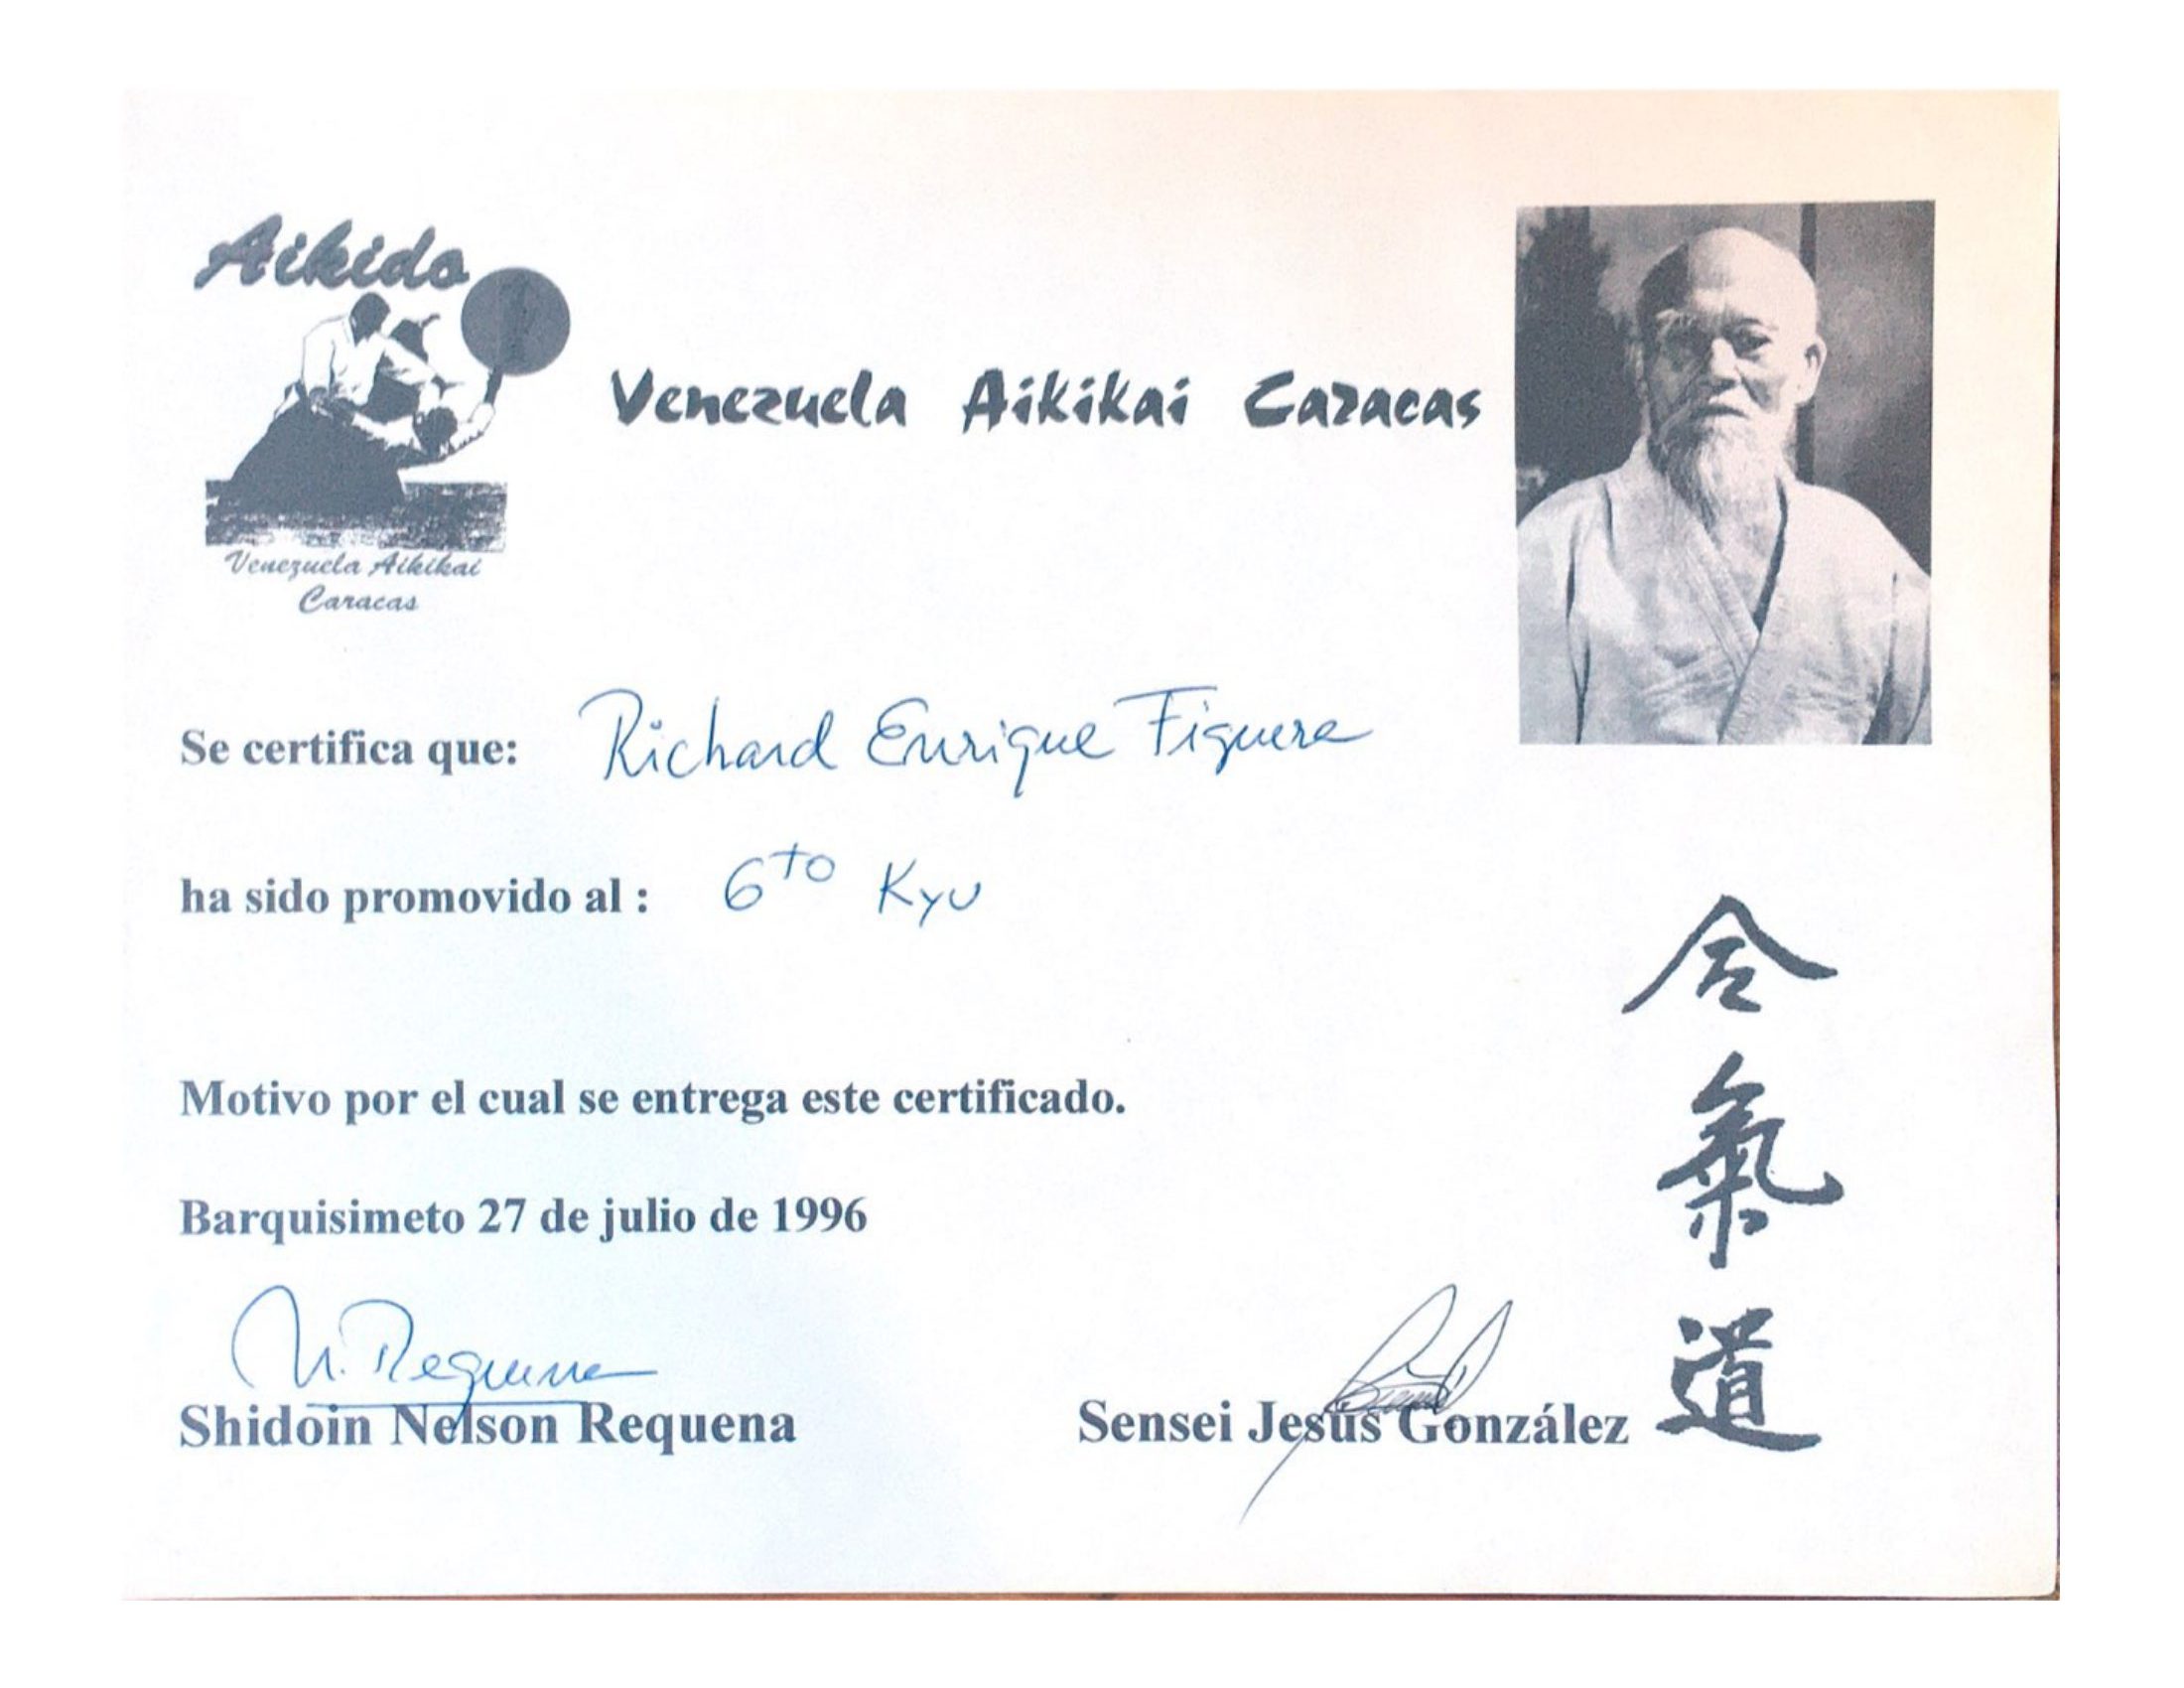 Aikido
Venezuela Aikikai
Caracas
Venezuela Aikikai Caracas
Se certifica que: Richard Enrique Figuera
ha sido promovido al : 6to Kyu
Motivo por el cual se entrega este certificado.
Barquisimeto 27 de julio de 1996
N. Requena
Shidoin Nelson Requena
Sensei Jesús González
合
氣
道